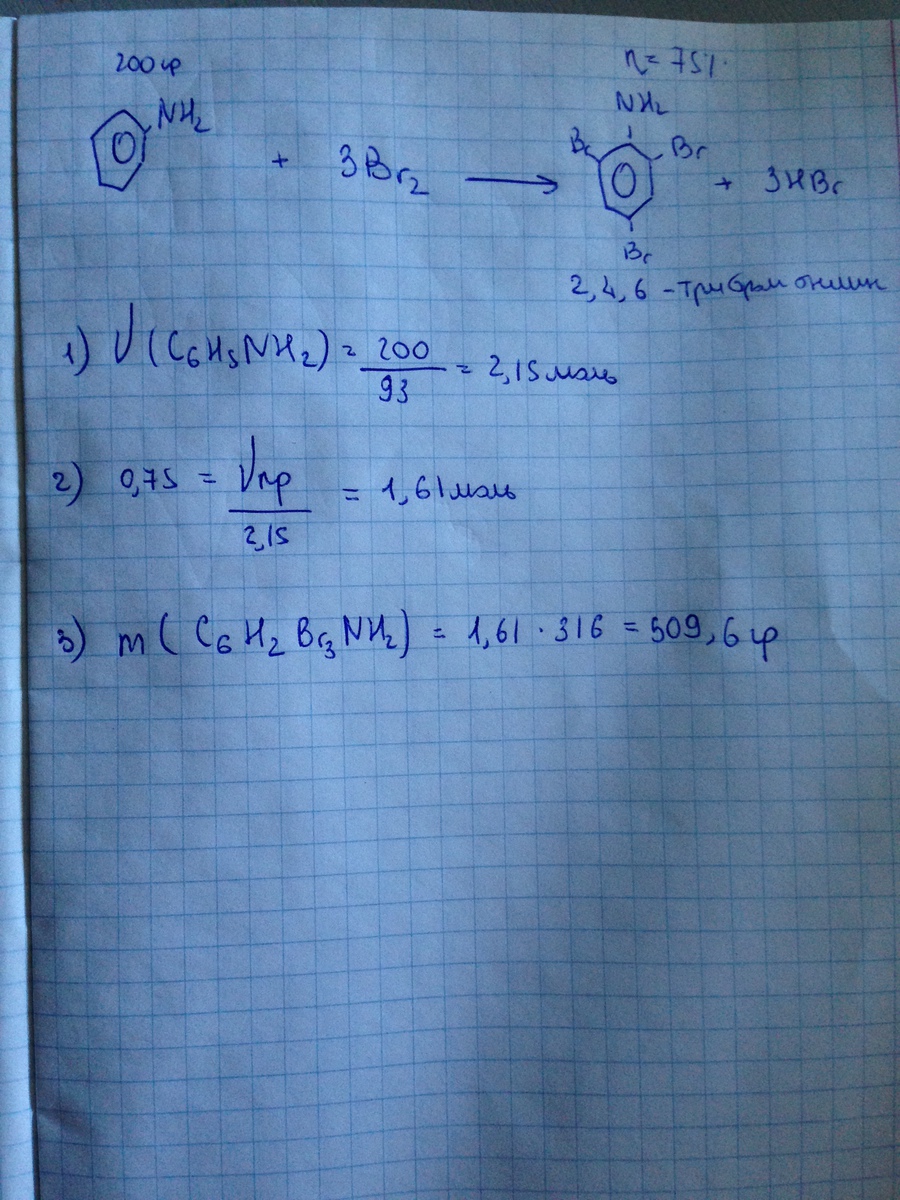 200 гр η = 75%
NH₂ + 3Br₂ → NH₂ Br Br Br + 3HBr
2,4,6 - трибром анилин
1) ν(C₆H₅NH₂) = 200/93 = 2,15 моль
2) 0,75 = νпр/2,15 = 1,61 моль
3) m(C₆H₂Br₃NH₂) = 1,61 · 316 = 509,6 гр